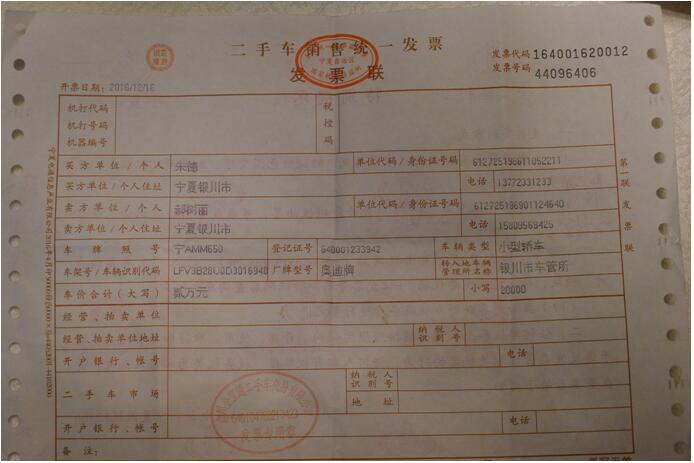 二手车销售统一发票
发票联
发票代码 164001620012
发票号码 44096406
开票日期: 2016/12/16
机打代码
机打号码
机器编号
税控码
买方单位/个人 朱德 单位代码/身份证号码 612725198611052211
买方单位/个人住址 宁夏银川市 电话 13772331233
卖方单位/个人 郝树丽 单位代码/身份证号码 612725196901124640
卖方单位/个人住址 宁夏银川市 电话 15809569425
车牌照号 宁AMM650 登记证号 640001233942 车辆类型 小型轿车
车架号/车辆识别代码 厂牌型号 奥迪牌 转入地车辆管理所名称 银川市车管所
车价合计(大写) 贰万元 小写 20000
经营、拍卖单位
经营、拍卖单位地址 纳税人识别号
开户银行、帐号 电话
二手车市场 纳税人识别号
地址
开户银行、帐号 电话
备注:
第一联 发票联
发票专用章